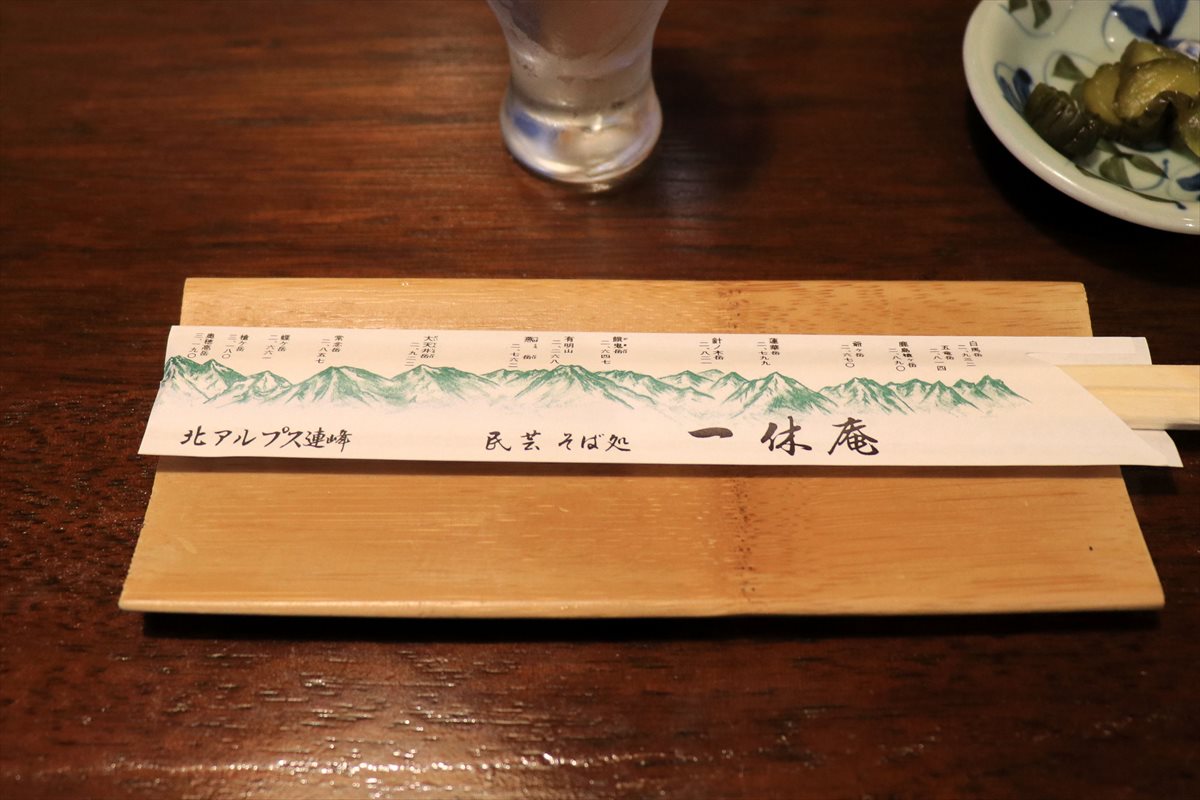 奥穂高岳 三一九〇
槍ヶ岳 三一八〇
蝶ヶ岳 二六六二
常念岳 二八五七
大天井岳 二九二二
燕岳 二七六二
有明山 二二六八
餓鬼岳 二六四七
針ノ木岳 二八二一
蓮華岳 二七九九
爺ヶ岳 二六七〇
鹿島槍ヶ岳 二八九〇
五竜岳 二八一四
白馬岳 二九三二
北アルプス連峰
民芸そば処 一休庵